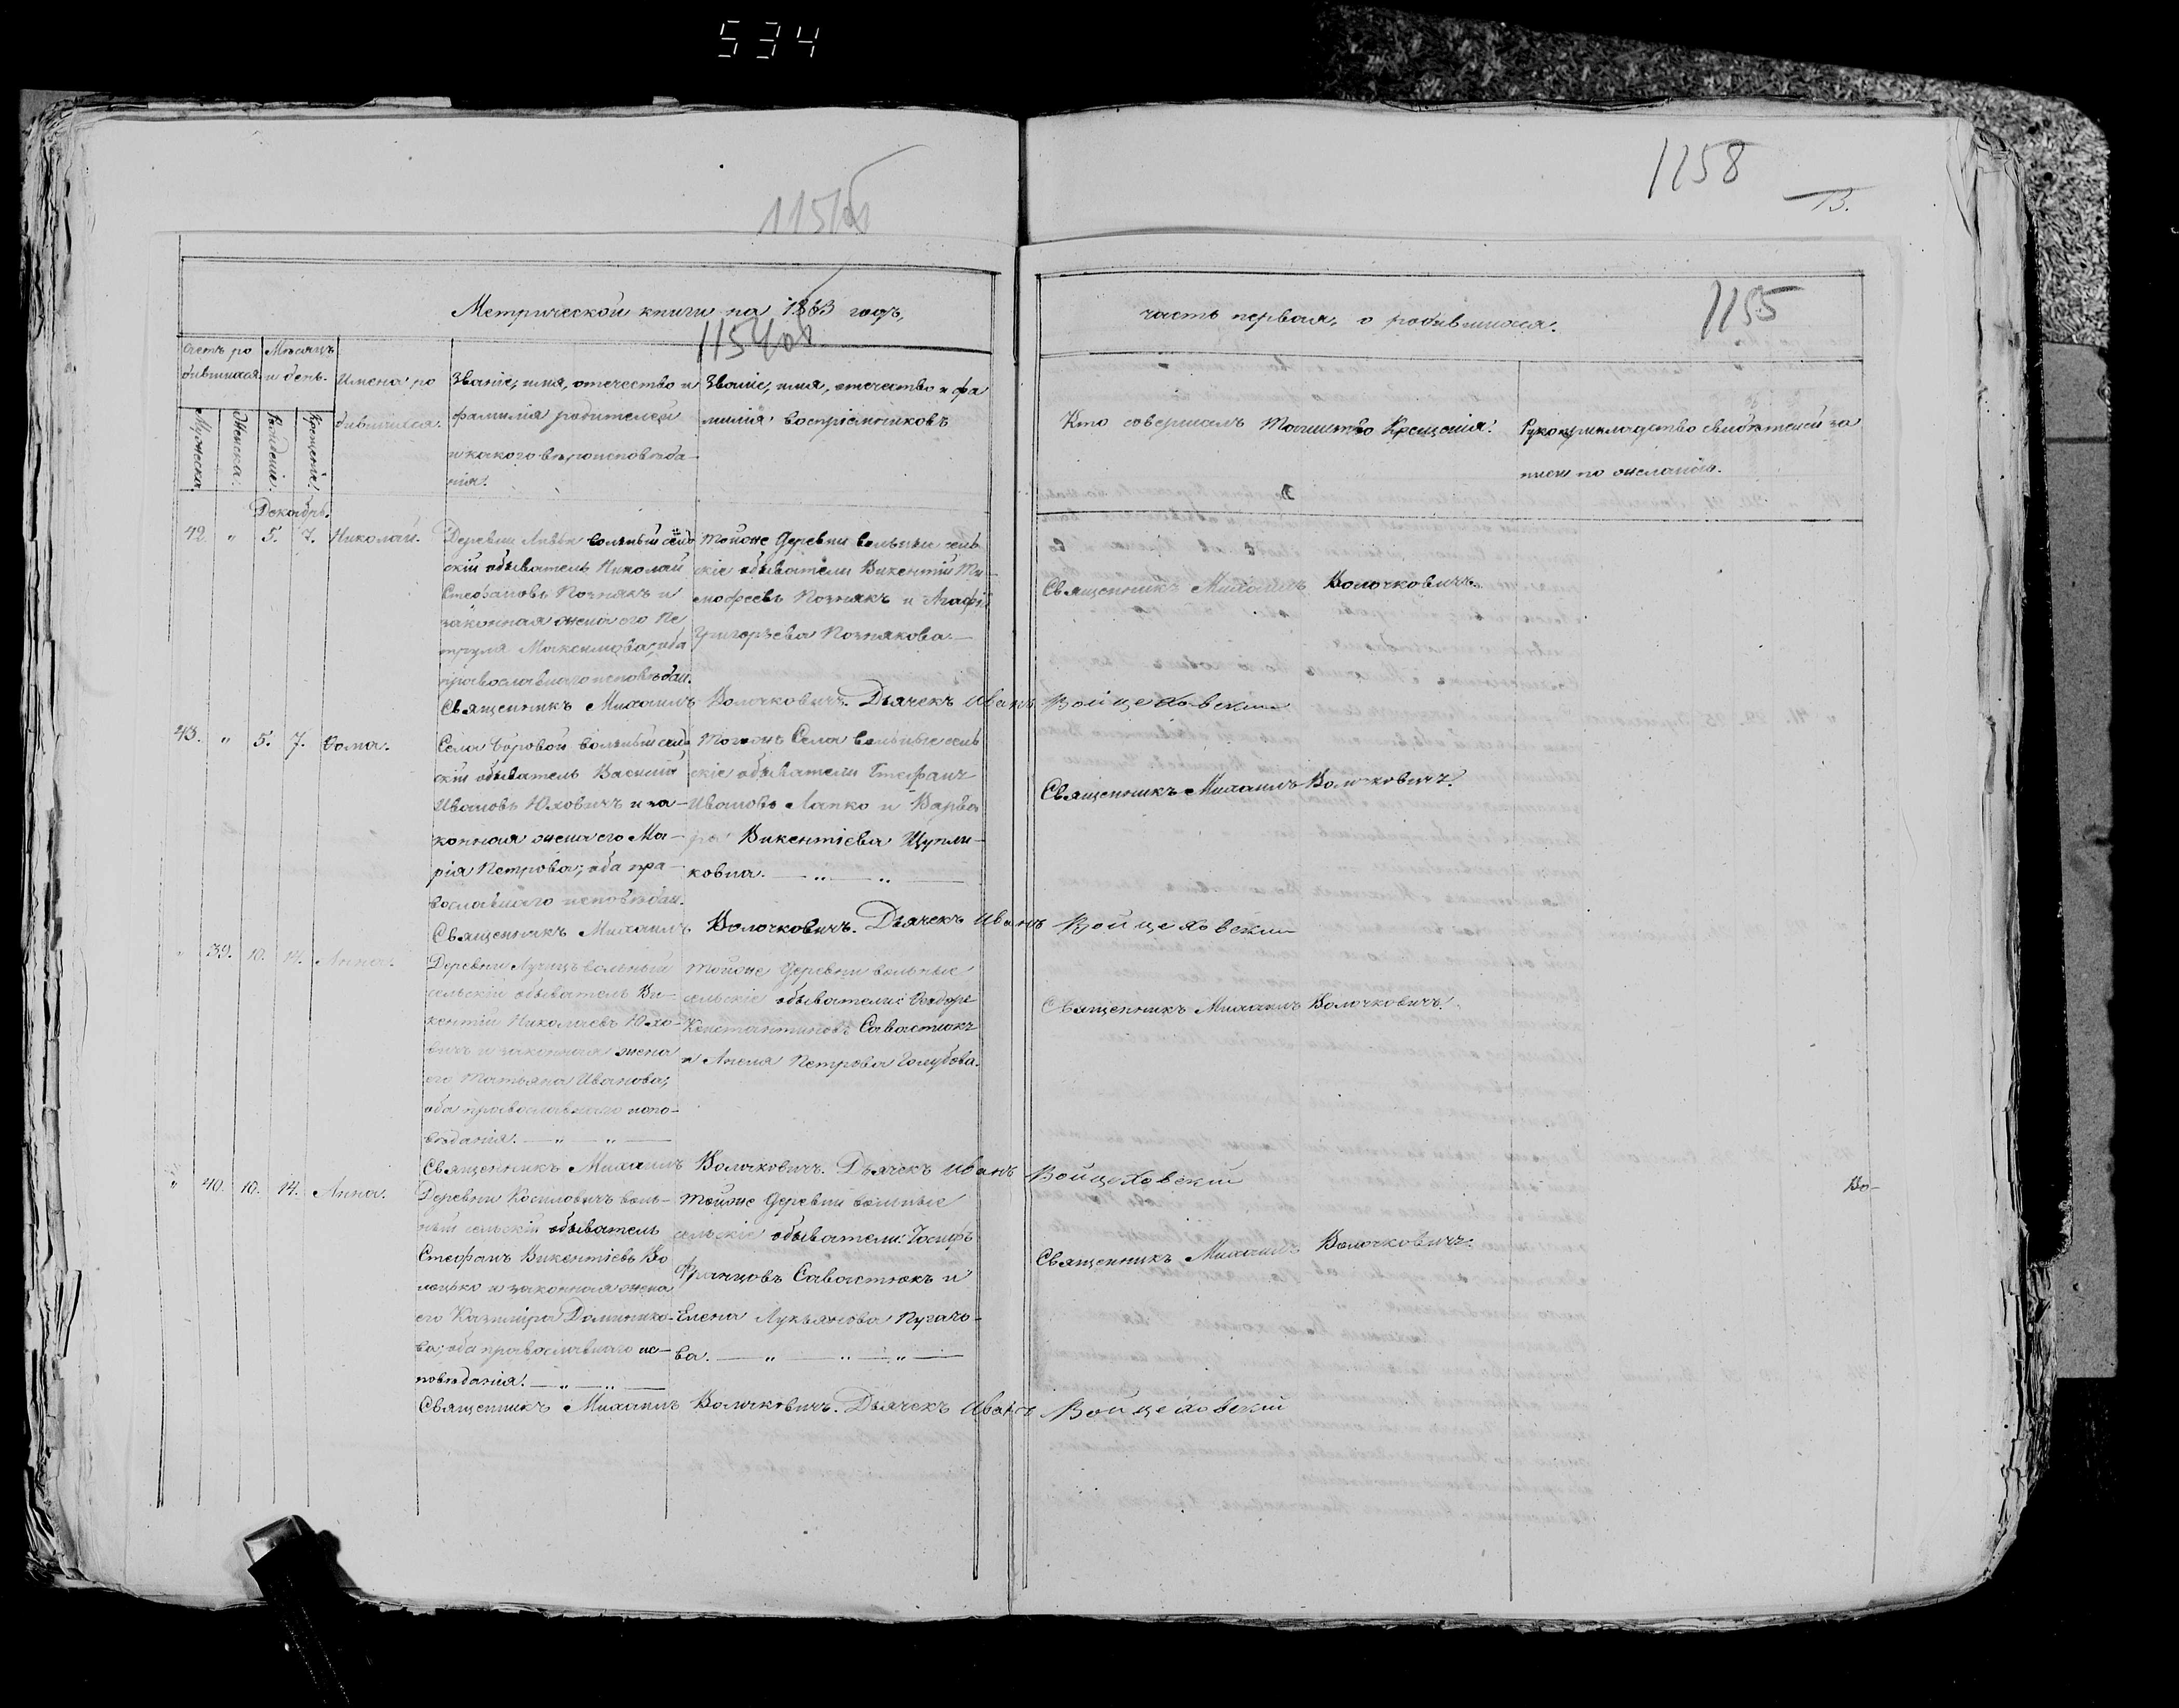 534
1158
13.
Метрической книги на 1863 годъ,
часть первая, о родившихся.
1155
Счетъ ро
дившихся
Мѣсяцъ
и день.
Мужеска.
Женска.
Рожденіе.
Крещеніе.
Имена ро
дившихся.
Званіе, имя, отечество и
фамилія родителей
и какого вѣроисповѣда-
нія.
Званіе, имя, отечество и фа
милія воспріемниковъ
Кто совершалъ Таинство Крещенія.
Рукоприкладство свидѣтелей за
писи по желанію.
Декабрь.
42 " 5. 7. Николай.
Деревни вольный сель
скій обыватель Николай
Стефановъ Познякъ и
законная жена его Пе
труля Максимова; оба
православнаго исповѣдан.
Тойже деревни вольные сель
скіе обыватели Викентій Ти-
мофеевъ Познякъ и Агафія
Григорьева Познякова.—
Священникъ Михаилъ Волочковичъ.
Священникъ Михаилъ Волочковичъ. Дьячекъ Иванъ Войцеховскій
43. " 5. 7. Фома.
Села Боровой вольный сель
скій обыватель Василій
Ивановъ Юховичъ и за-
конная жена его Ма-
рія Петрова; оба пра-
вославнаго исповѣдан.
Тогоже Села вольные сель
скіе обыватели Стефанъ
Ивановъ Лапко и Варва
ра Викентіева Щупли-
ковна. — " — " —
Священникъ Михаилъ Волочковичъ.
Священникъ Михаилъ Волочковичъ. Дьячекъ Иванъ Войцеховскій
" 39. 10. 14. Анна.
Деревни Лучицъ вольный
сельскій обыватель Ви-
кентій Николаевъ Юхо-
вичъ и законная жена
его Татьяна Иванова;
оба православнаго испо-
вѣданія. — " — " —
Тойже деревни вольные
сельскіе обыватели: Феодоръ
Константиновъ Савастюкъ
и Анеля Петрова Голубова.
Священникъ Михаилъ Волочковичъ.
Священникъ Михаилъ Волочковичъ. Дьячекъ Иванъ Войцеховскій
" 40. 10. 14. Анна.
Деревни Косиловичъ воль-
ный сельскій обыватель
Стефанъ Викентіевъ Во
лоцько и законная жена
его Казиміра Доминико-
ва; оба православнаго ис-
повѣданія. — " — " —
Тойже деревни вольные
сельскіе обыватели: Іосифъ
Францовъ Савастюкъ и
Елена Лукьянова Пугачо-
ва. — " — " — " —
Священникъ Михаилъ Волочковичъ.
Священникъ Михаилъ Волочковичъ. Дьячекъ Иванъ Войцеховскій
Во-